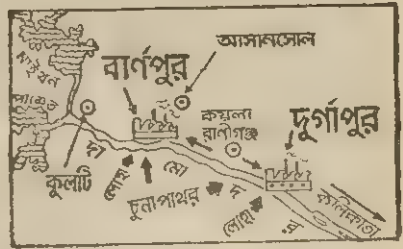 মাইথন
পাঞ্চেত
বার্ণপুর
আসানসোল
কয়লা
রানীগঞ্জ
দুর্গাপুর
কুলটি
দা মো দ র
লোহা
চুনাপাথর
লোহা
কলিকাতা